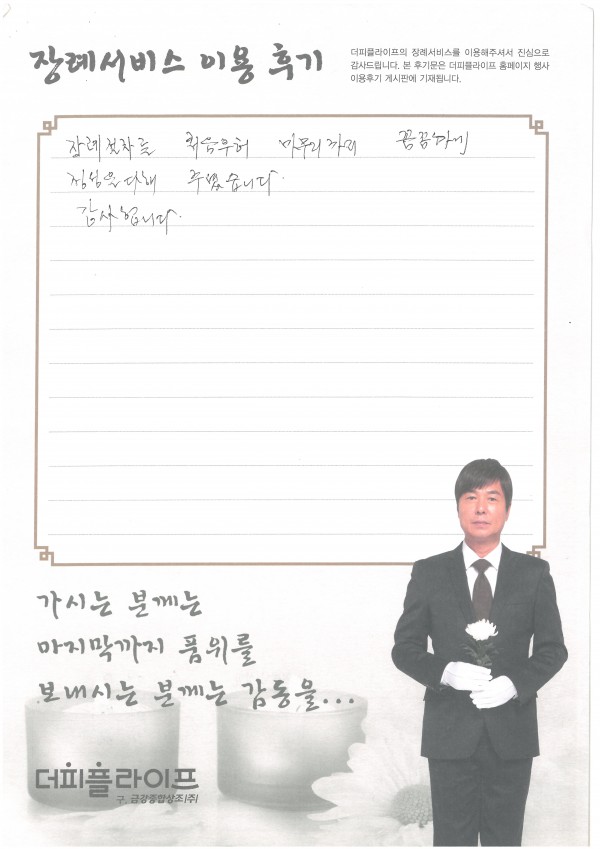 장례서비스 이용 후기
더피플라이프의 장례서비스를 이용해주셔서 진심으로
감사드립니다. 본 후기문은 더피플라이프 홈페이지 행사
이용후기 게시판에 기재됩니다.
장례절차를 처음부터 마무리까지 꼼꼼하게
정성을다해 주셨습니다.
감사합니다.
가시는 분께는
마지막까지 품위를
보내시는 분께는 감동을...
더피플라이프
구. 금강종합상조(주)